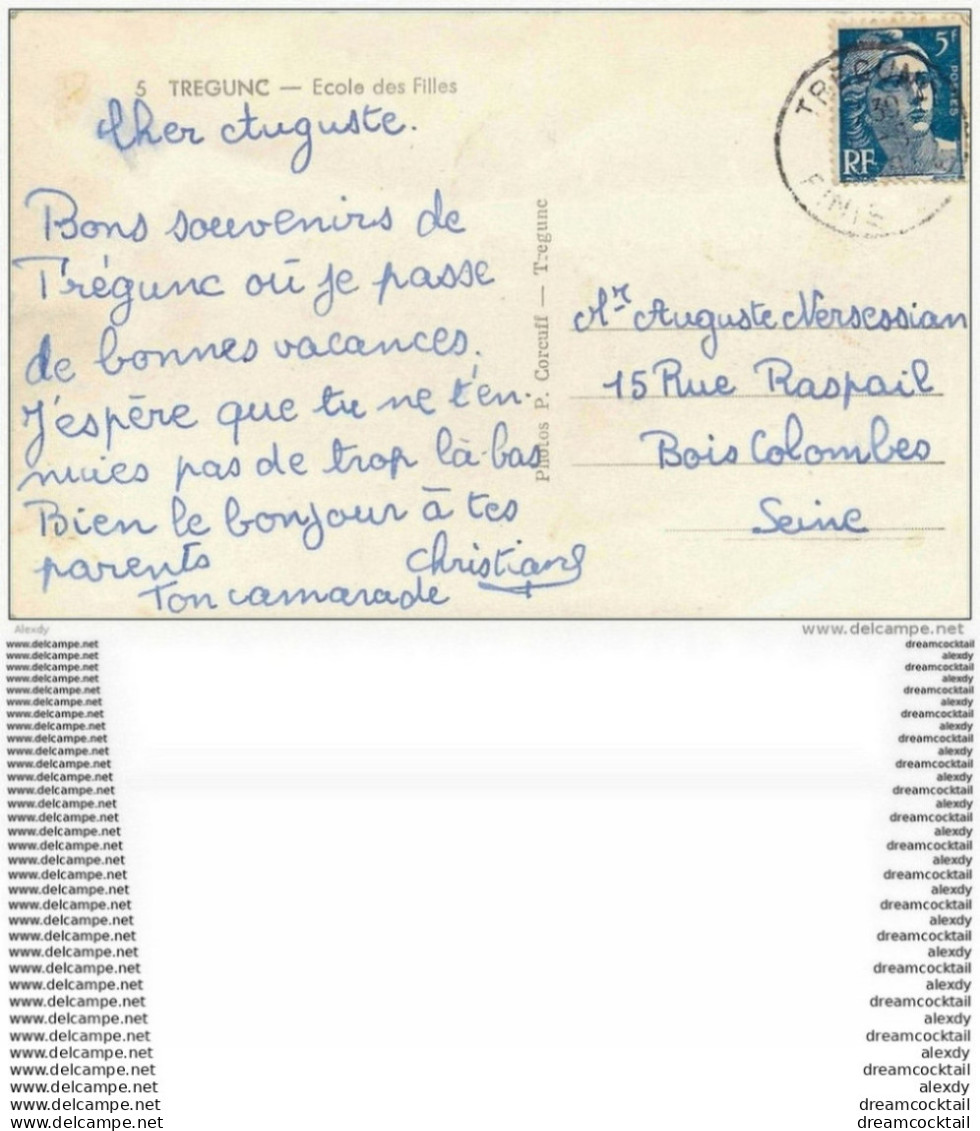 5 TREGUNC — Ecole des Filles
Cher Auguste.
Bons souvenirs de
Trégunc où je passe
de bonnes vacances.
J'espère que tu ne t'en-
nuies pas de trop là-bas
Bien le bonjour à tes
parents
Christian
Ton camarade
Photos P. Corcuff — Tregunc
5F
POSTES
RF
TREGUNC
FINIS
Mr Auguste Nersessian
15 Rue Raspail
Bois Colombes
Seine
Alexdy
www.delcampe.net
www.delcampe.net dreamcocktail
www.delcampe.net alexdy
www.delcampe.net dreamcocktail
www.delcampe.net alexdy
www.delcampe.net dreamcocktail
www.delcampe.net alexdy
www.delcampe.net dreamcocktail
www.delcampe.net alexdy
www.delcampe.net dreamcocktail
www.delcampe.net alexdy
www.delcampe.net dreamcocktail
www.delcampe.net alexdy
www.delcampe.net dreamcocktail
www.delcampe.net alexdy
www.delcampe.net dreamcocktail
www.delcampe.net alexdy
www.delcampe.net dreamcocktail
www.delcampe.net alexdy
www.delcampe.net dreamcocktail
www.delcampe.net alexdy
www.delcampe.net dreamcocktail
www.delcampe.net alexdy
www.delcampe.net dreamcocktail
www.delcampe.net alexdy
www.delcampe.net dreamcocktail
www.delcampe.net alexdy
www.delcampe.net dreamcocktail
www.delcampe.net alexdy
www.delcampe.net dreamcocktail
www.delcampe.net alexdy
www.delcampe.net dreamcocktail
www.delcampe.net alexdy
www.delcampe.net dreamcocktail
www.delcampe.net dreamcocktail